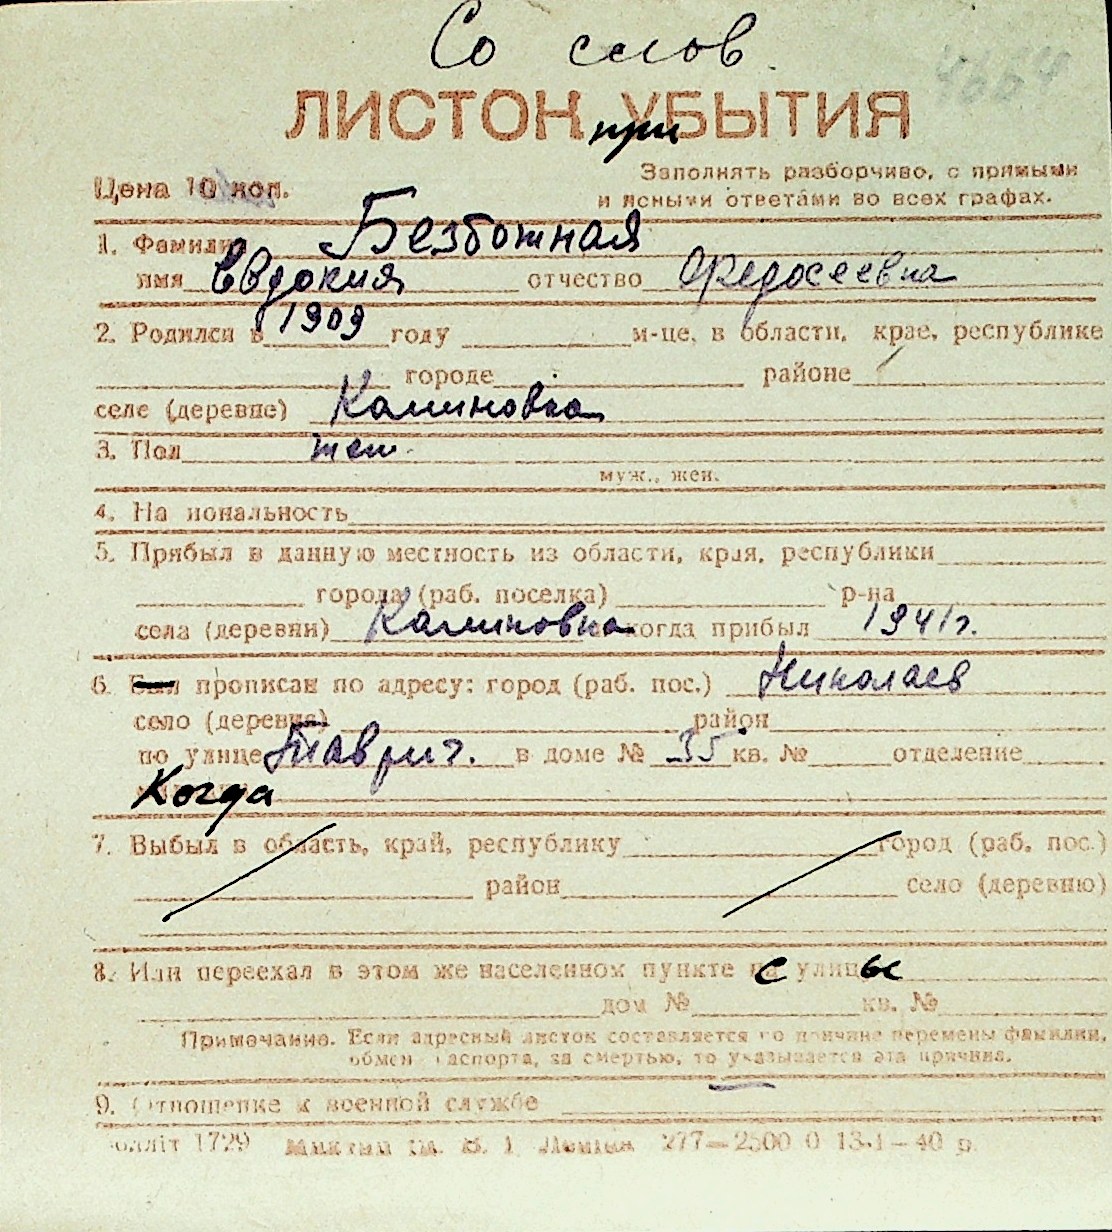 Со слов
4664
ЛИСТОК при УБЫТИЯ
Цена 10 коп.
Заполнять разборчиво, с прямыми
и ясными ответами во всех графах.
1. Фамилия Безбожная
имя Евдокия отчество Федосеевна
2. Родился в 1909 году м-це, в области, крае, республике
городе районе
селе (деревне) Калиновка
3. Пол жен.
муж., жен.
4. На иональность
5. Прибыл в данную местность из области, края, республики
города (раб. поселка) р-на
села (деревни) Калиновка когда прибыл 1941 г.
6. Был прописан по адресу: город (раб. пос.) Николаев
село (деревня) район
по улице Таврич. в доме № 35 кв. № отделение
Когда
7. Выбыл в область, край, республику город (раб. пос.)
район село (деревню)
8. Или переехал в этом же населенном пункте с улицы
дом № кв. №
Примечание. Если адресный листок составляется по причине перемены фамилии,
обмен паспорта, за смертью, то указывается эта причина.
9. Отношение к военной службе
1729 277—2500 0 13.1—40 р.